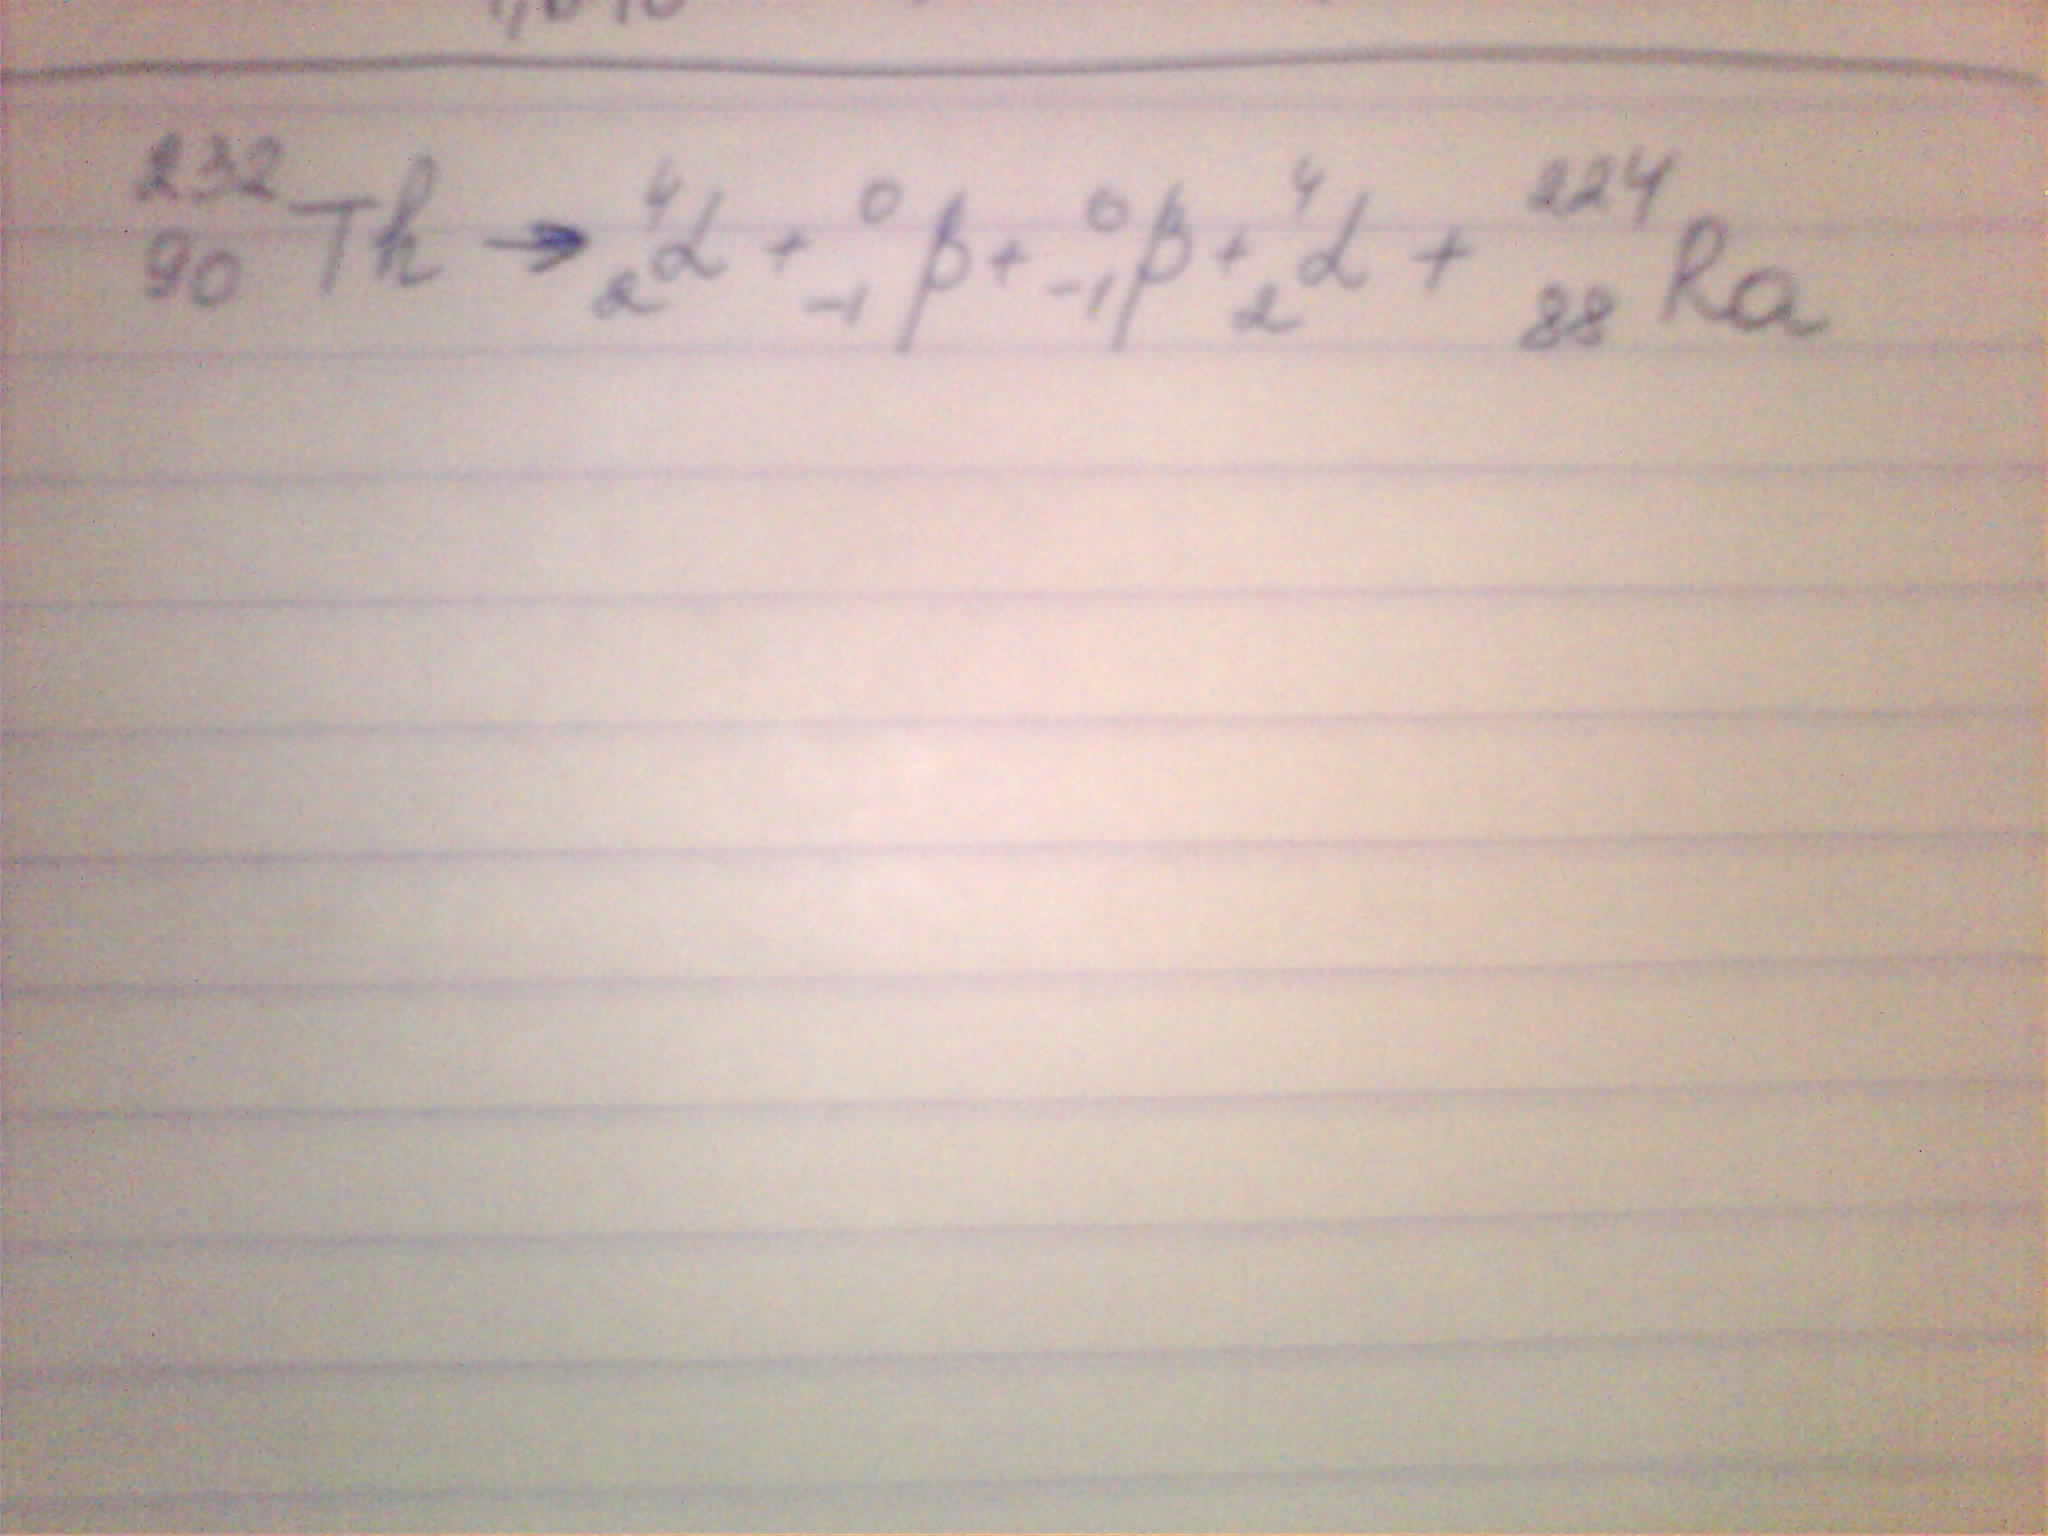 ²³²₉₀Th → ⁴₂α + ⁰₋₁β + ⁰₋₁β + ⁴₂α + ²²⁴₈₈Ra